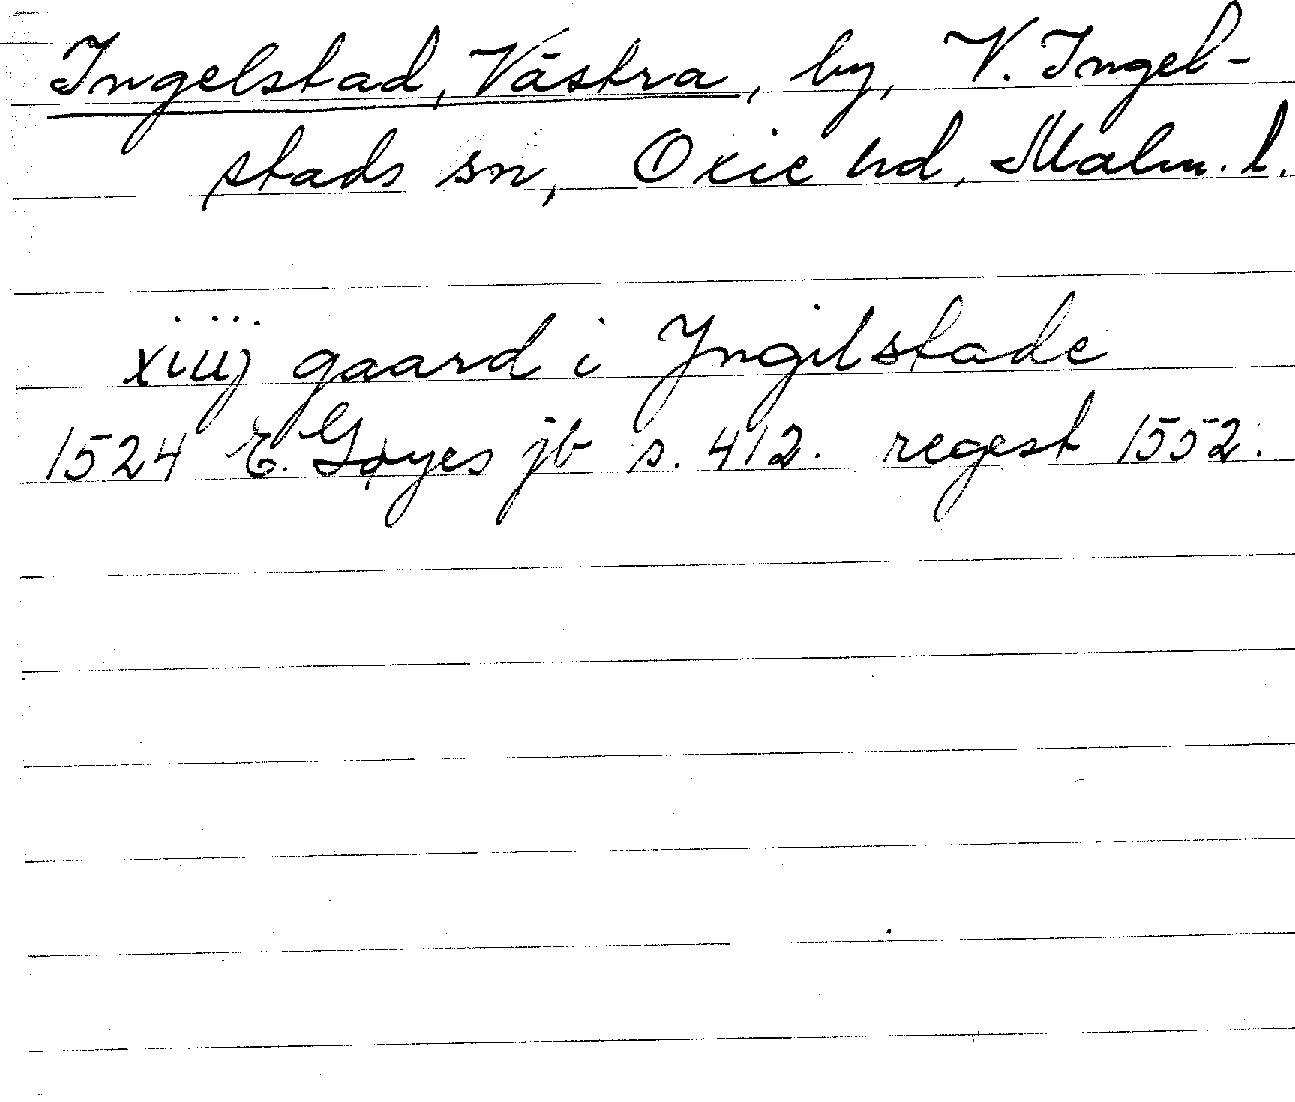 Ingelstad, Västra, by, V. Ingel-
stads sn, Oxie hd, Malm. l.
xiiij gaard i Jngilstade
1524 E. Gøyes jb s. 412. regest 1552.